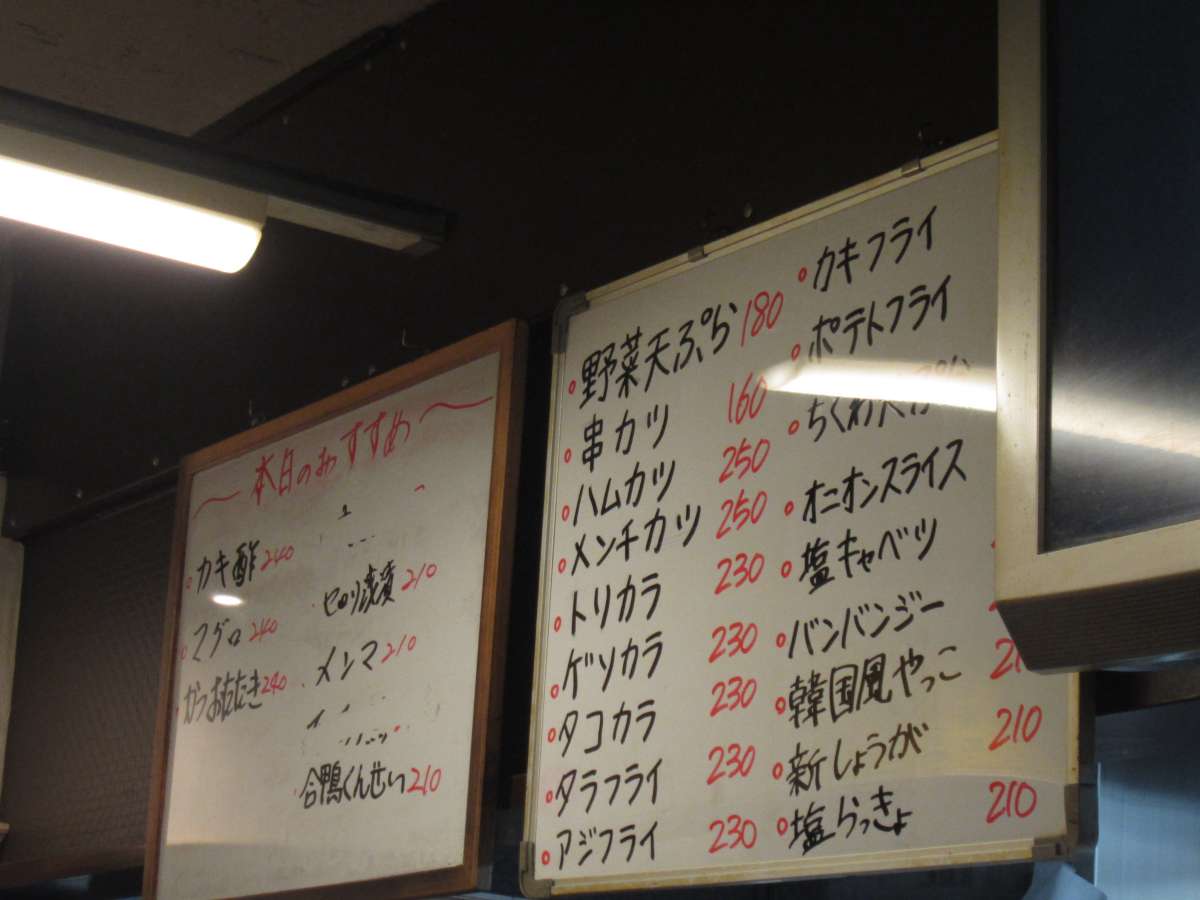 本日のおすすめ
カキ酢 240
マグロ 240
かつおたたき 240
メンマ 210
合鴨くんせい 210
野菜天ぷら 180
串カツ 160
ハムカツ 250
メンチカツ 250
トリカラ 230
ゲソカラ 230
タコカラ 230
タラフライ 230
アジフライ 230
カキフライ
ポテトフライ
ちくわ天ぷら
オニオンスライス
塩キャベツ
バンバンジー
韓国風やっこ
新しょうが 210
塩らっきょ 210